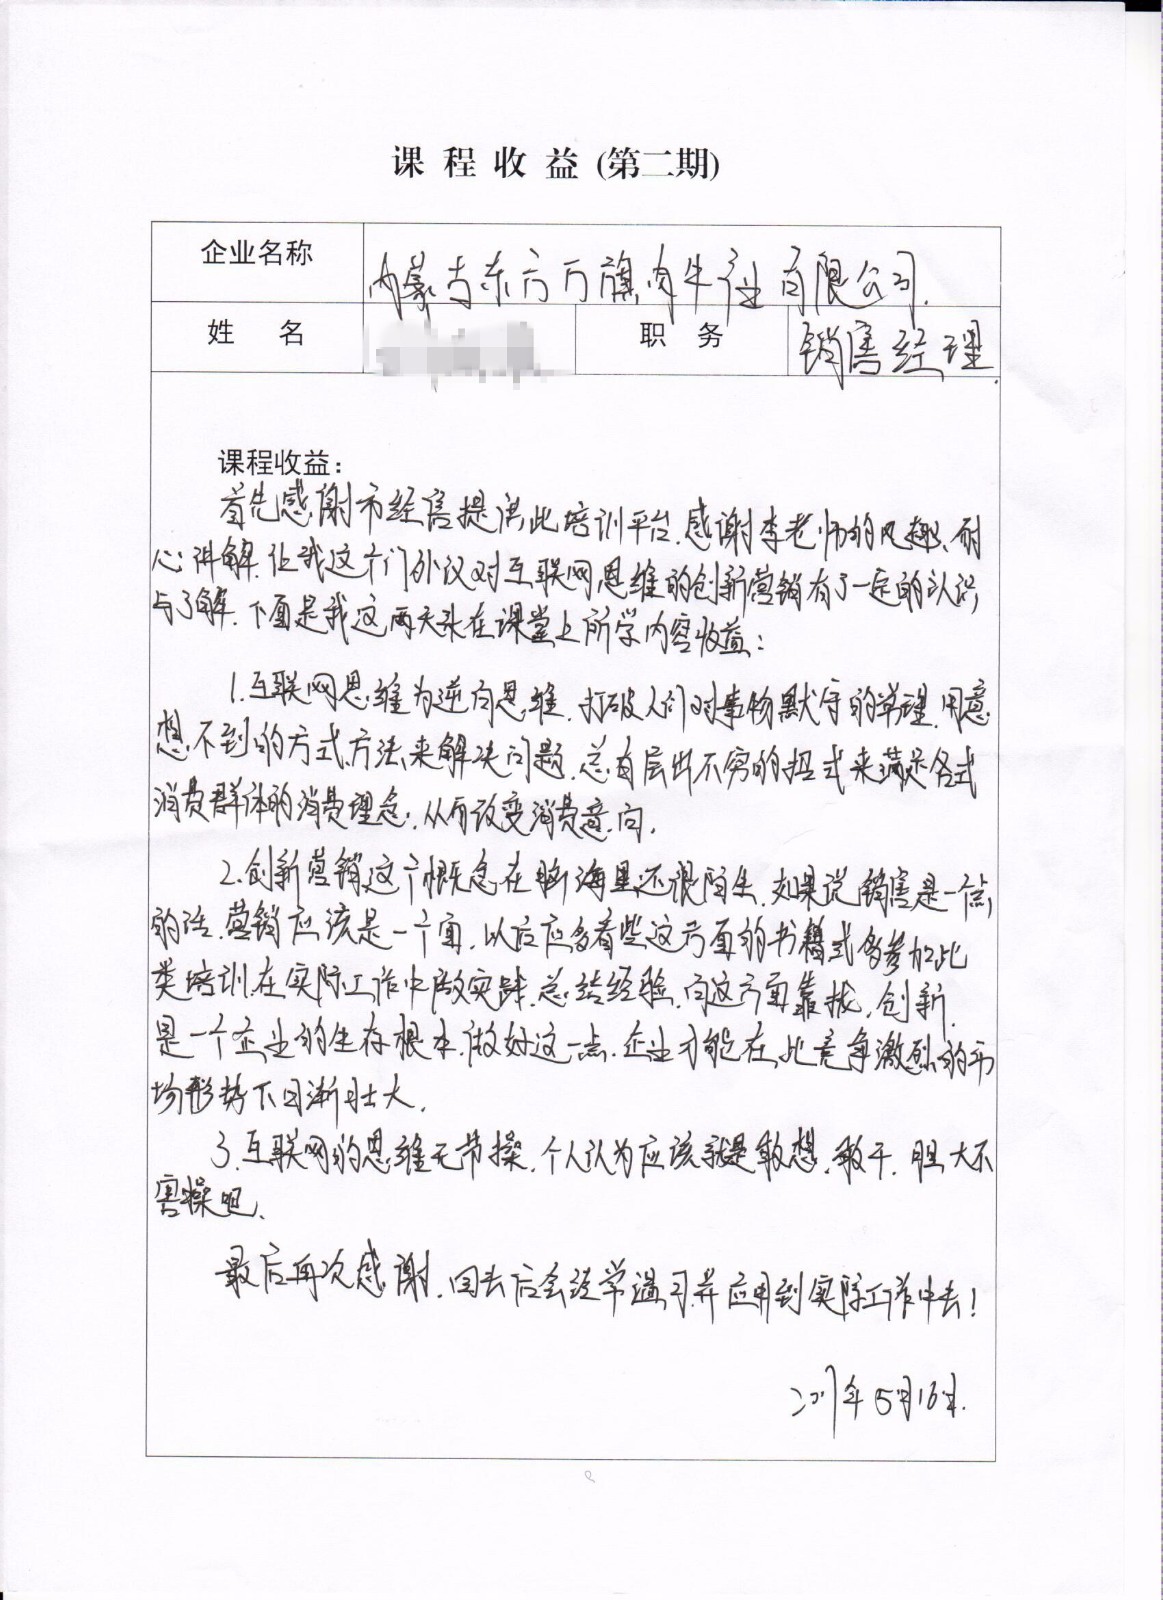 课程收益(第二期)
企业名称 内蒙古东方万旗肉牛产业有限公司.
姓名 职务 销售经理.
课程收益：
首先感谢市经信提供此培训平台.感谢李老师的风趣、耐
心讲解.让我这个门外汉对互联网思维的创新营销有了一定的认识
与了解.下面是我这两天来在课堂上所学内容收益：
1.互联网思维为逆向思维.打破人们对事物默守的常理.用意
想不到的方式、方法来解决问题.总有层出不穷的招式来满足各式
消费群体的消费理念.从而改变消费意向.
2.创新营销这个概念在脑海里还很陌生.如果说销售是一个点
的话.营销应该是一个面.以后应多看些这方面的书籍或多参加此
类培训.在实际工作中做实践.总结经验.向这方面靠拢.创新
是一个企业的生存根本.做好这一点.企业才能在此竞争激烈的市
场形势下日渐壮大.
3.互联网的思维无节操.个人认为应该就是敢想.敢干.胆大不
害臊吧.
最后再次感谢.回去后会经学温习.并应用到实际工作中去!
2017年5月16日.